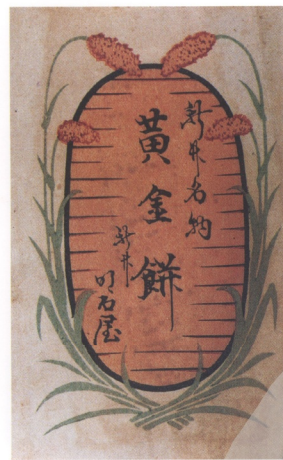 新井名物
黄金餅
新井
明石屋